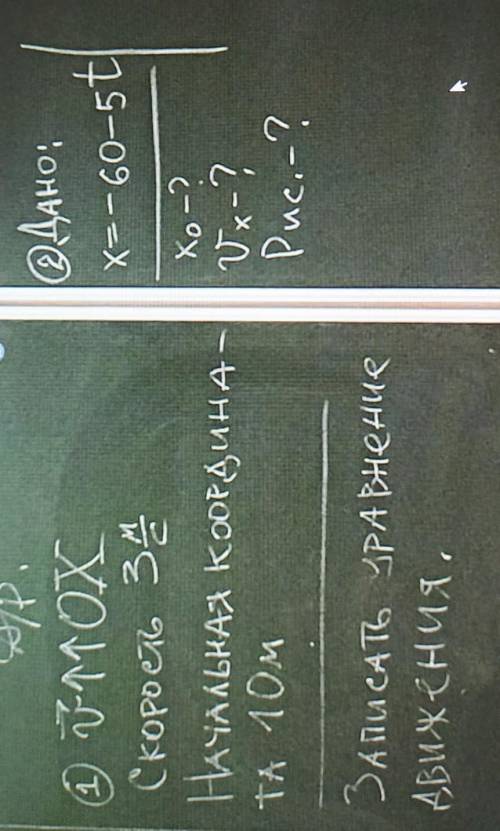 ① v⃗ ↑↑ OX
Скорость 3 м/с
Начальная координа-
та 10м
Записать уравнение
движения.
② Дано:
x = -60 - 5t
x₀ - ?
υₓ - ?
Рис. - ?